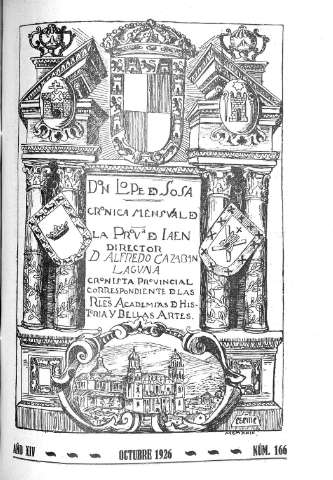 DON LOPE D SOSA
CRONICA MENSVAL D
LA PROVᴬ D JAEN
DIRECTOR
D ALFREDO CAZABAN
LAGUNA
CRONISTA PROVINCIAL
CORRESPONDIENTE D LAS
RLES ACADEMIAS D HIS-
TORIA Y BELLAS ARTES.
AÑO XIV
OCTUBRE 1926
NÚM. 166